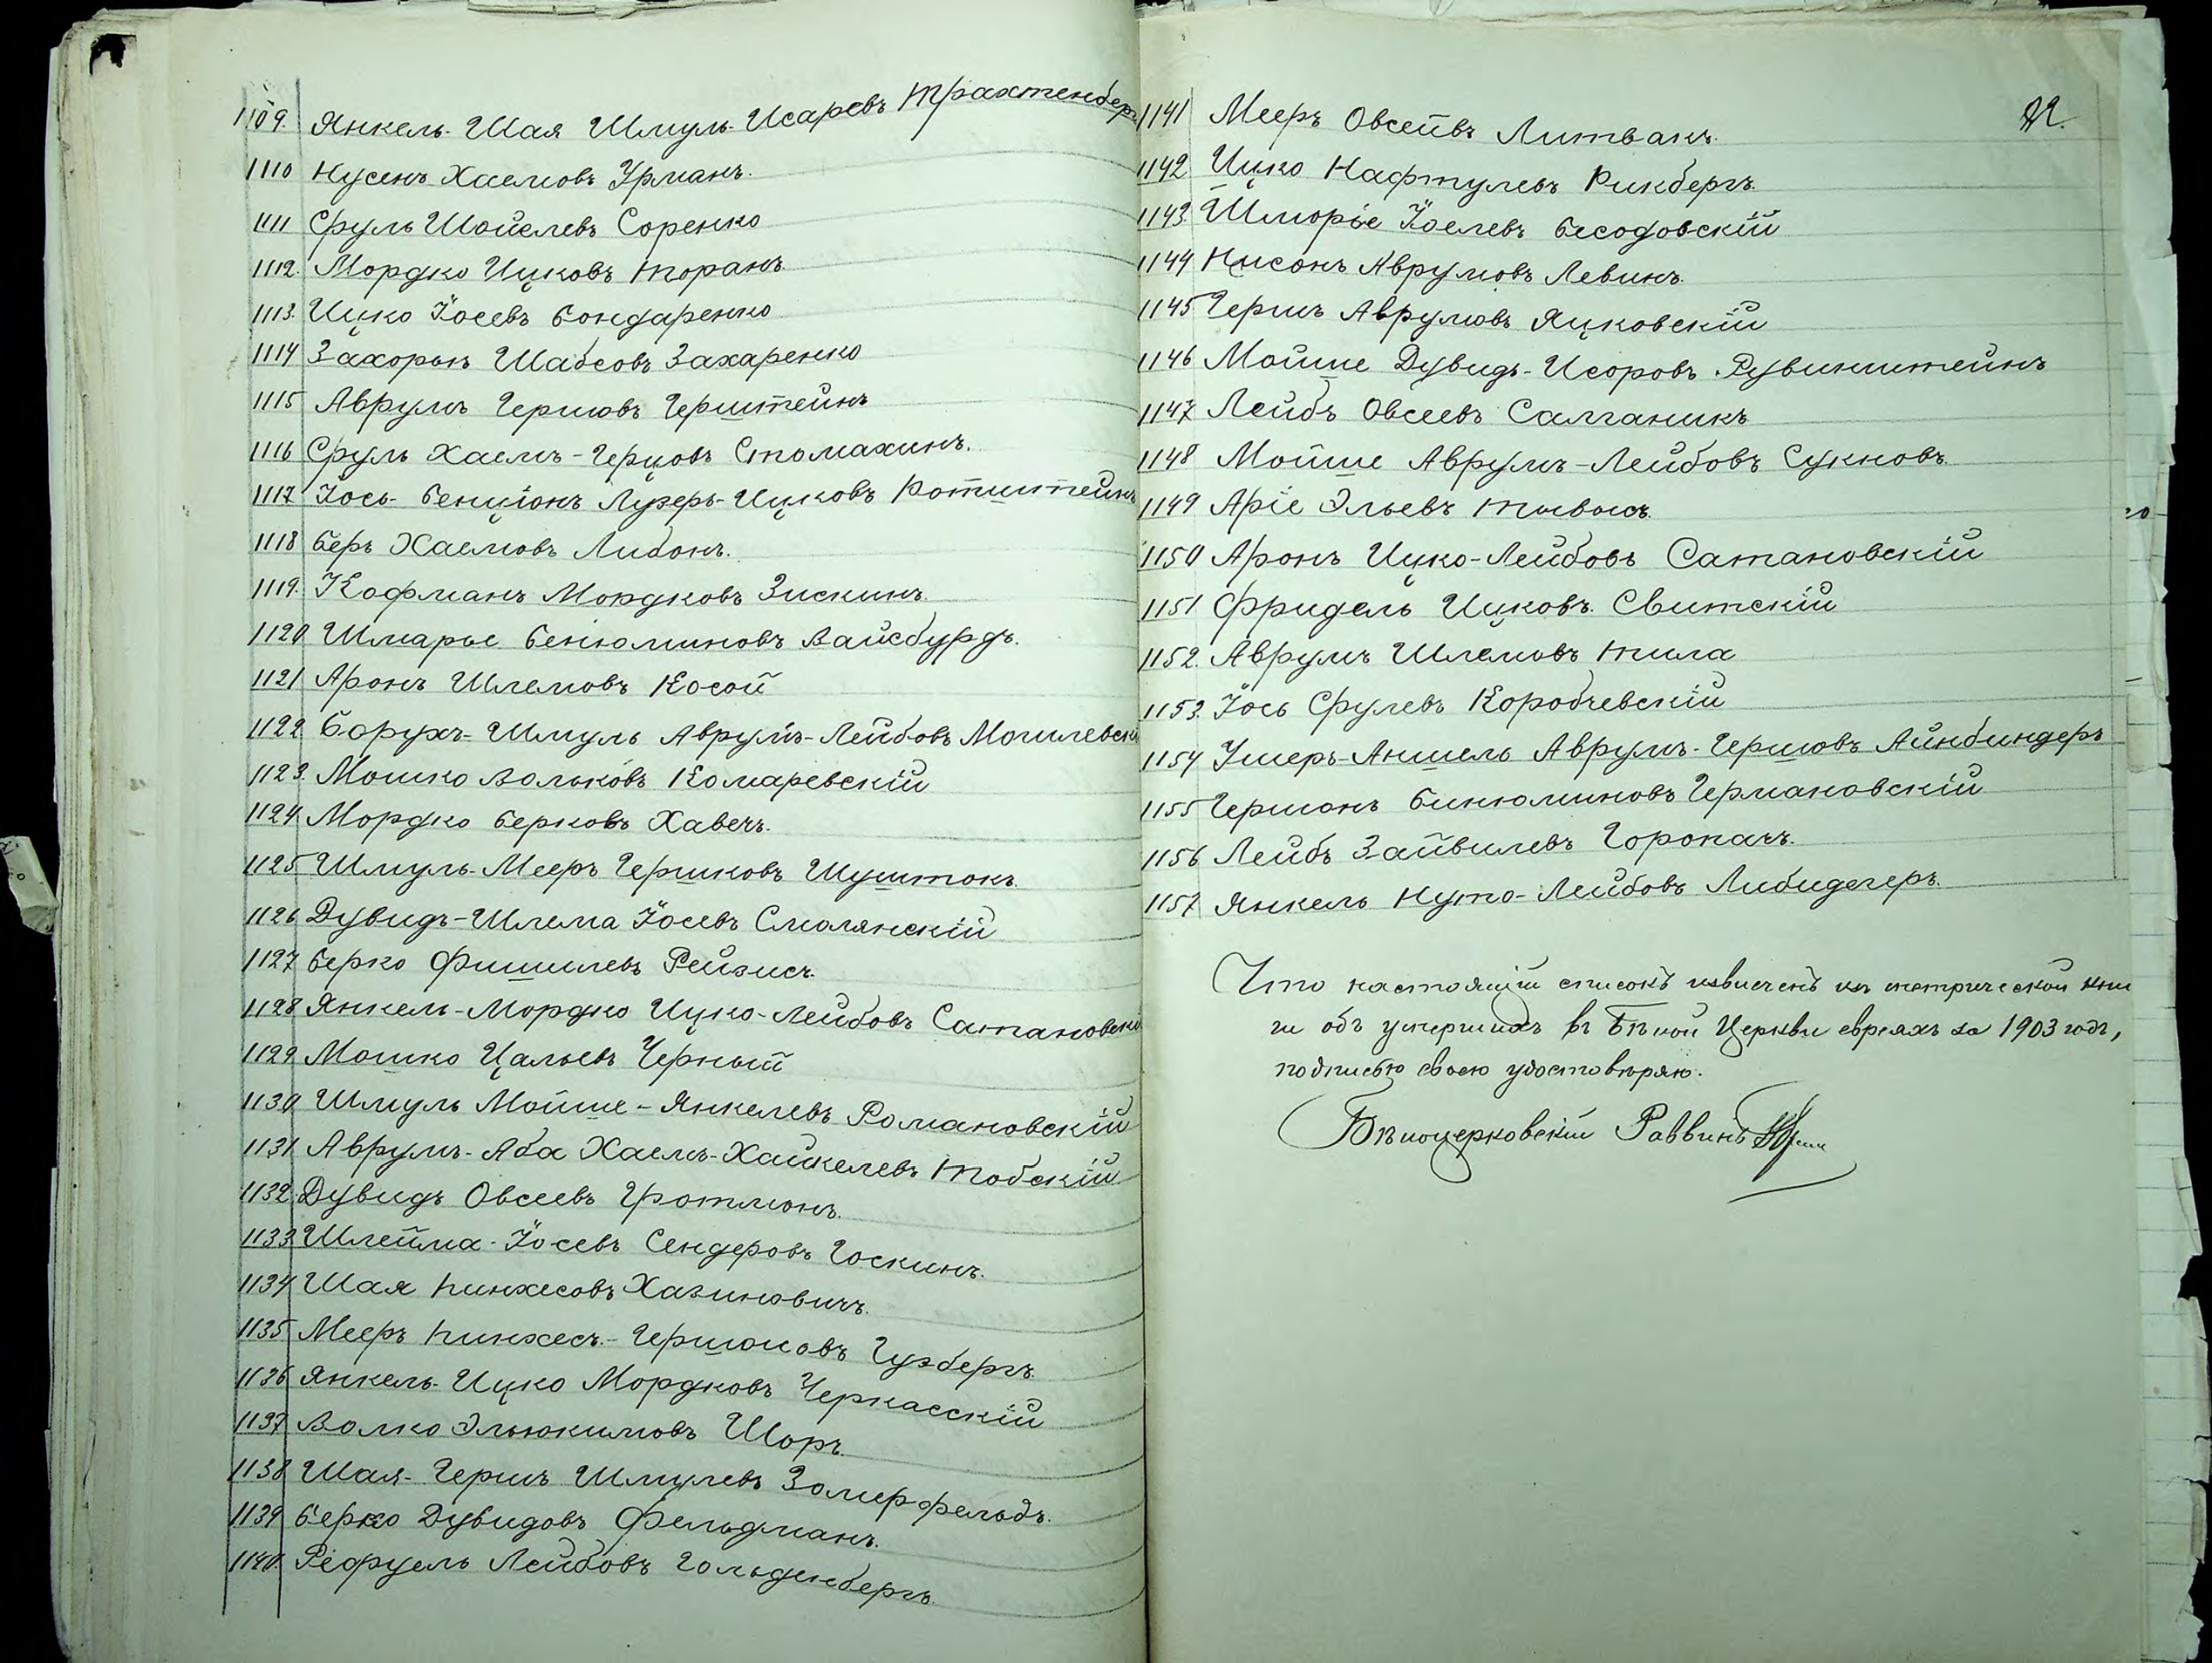 1109. Янкель-Шая Шмуль-Исаревъ Трахтенбер
1110 Нусенъ Хаемовъ Урманъ.
1111 Сруль Шойелевъ Соренко
1112. Мордко Ицковъ Торанъ.
1113. Ицко Іосевъ Бондаренко
1114 Захорья Шабсовъ Захаренко
1115 Аврумъ Гершовъ Герштейнъ
1116 Сруль Хаемъ-Герцовъ Стомахинъ.
1117 Іось-Бенціонъ Лузеръ-Ицковъ Ротштейнъ
1118 Беръ Хаемовъ Либонъ.
1119. Кофманъ Мордковъ Зискинъ.
1120 Шмарье Бенюминовъ Вайсбурдъ.
1121 Аронъ Шлемовъ Косой
1122 Борухъ-Шмуль Аврумъ-Лейбовъ Могилевскі
1123. Мошко Вольковъ Комаревскій
1124. Мордко Берковъ Хавечъ.
1125 Шмуль-Мееръ Гершковъ Шуштокъ.
1126 Дувидъ-Шлема Іосевъ Смолянскій
1127 Берко Фишилевъ Рейзисъ.
1128 Янкель-Мордко Ицко-Лейбовъ Сатановскі
1129 Мошко Цальевъ Черный
1130 Шмуль Мойше-Янкелевъ Романовскій
1131 Аврумъ-Аба Хаемъ-Хайкелевъ Тобскій
1132. Дувидъ Овсеевъ Гротмонъ.
1133. Шлейма-Іосевъ Сендеровъ Госкинъ.
1134 Шая Пинхесовъ Хазиновичъ.
1135 Мееръ Пинхесъ-Гершоновъ Гузбергъ.
1136 Янкель-Ицко Мордковъ Черкасскій
1137 Волко Эльюкимовъ Шоръ.
1138 Шая-Гершъ Шмулевъ Зомерфельдъ.
1139 Берко Дувидовъ Фельдманъ.
1140. Рефуель Лейбовъ Гольденбергъ.
1141 Мееръ Овсеевъ Литвакъ.
1142 Ицко Нафтулевъ Рикбергъ.
1143. Шморье Іоелевъ Бесодовскій
1144 Нисонъ Аврумовъ Левинъ.
1145 Гершъ Аврумовъ Яцковскій
1146 Мойше Дувидъ-Исоровъ Рувинштейнъ
1147 Лейбъ Овсеевъ Салганикъ
1148 Мойше Аврумъ-Лейбовъ Сукновъ
1149 Аріе Эльевъ Тывысъ.
1150 Аронъ Ицко-Лейбовъ Сатановскій
1151 Фридель Ицковъ Свитскій
1152. Аврумъ Шлемовъ Тила
1153. Іось Срулевъ Коробчевскій
1154 Ушеръ-Аншель Аврумъ-Гершовъ Айнбиндеръ
1155 Гершонъ Бинюминовъ Германовскій
1156 Лейбъ Зайвилевъ Горокачъ.
1157 Янкель Нуто-Лейбовъ Либидегеръ.
Что настоящій списокъ извлеченъ изъ метрической кни
ги объ умершихъ въ Бѣлой Церкви евреяхъ за 1903 годъ,
подписью своею удостовѣряю.
Бѣлоцерковскій Раввинъ